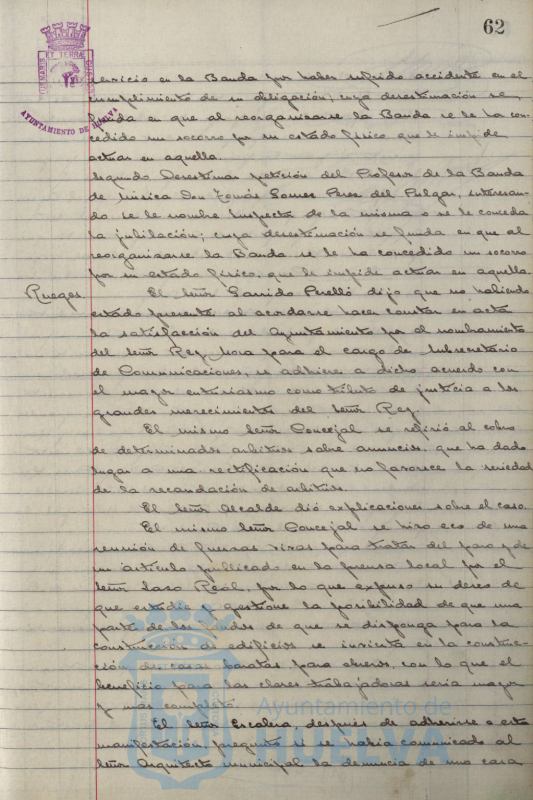 62
AYUNTAMIENTO DE HUELVA
servicio en la Banda por haber sufrido accidente en el
cumplimiento de su obligación; cuya desestimación se
funda en que al reorganizarse la Banda se le ha con-
cedido un socorro por su estado físico que le impide
actuar en aquella.
Segundo Desestimar petición del Profesor de la Banda
de Música Don Tomás Gomez Perez del Pulgar, interesan-
do se le nombre Inspector de la misma o se le conceda
la jubilación; cuya desestimación se funda en que al
reorganizarse la Banda se le ha concedido un socorro
por su estado físico, que le impide actuar en aquella.
Ruegos. El Señor Garrido Perelló dijo que no habiendo
estado presente al acordarse hacer constar en acta
la satisfacción del Ayuntamiento por el nombramiento
del Señor Rey Mora para el cargo de Subsecretario
de Comunicaciones, se adhiere a dicho acuerdo con
el mayor entusiasmo como tributo de justicia a los
grandes merecimientos del Señor Rey.
El mismo Señor Concejal se refirió al cobro
de determinados arbitrios sobre anuncios, que ha dado
lugar a una rectificación que no favorece la seriedad
de la recaudación de arbitrios.
El Señor Alcalde dió explicaciones sobre el caso.
El mismo Señor Concejal se hizo eco de una
reunión de fuerzas vivas para tratar del paro y de
un artículo publicado en la prensa local por el
Señor Laso Real, por lo que expuso su deseo de
que estudie y gestione la posibilidad de que una
parte de los fondos de que se disponga para la
construcción de edificios se invierta en la construc-
ción de casas baratas para obreros, con lo que el
beneficio para las clases trabajadoras sería mayor
y mas completo.
El Señor Escalera, después de adherirse a esta
manifestación, preguntó si se había comunicado al
Señor Arquitecto municipal la denuncia de una casa
Ayuntamiento de
HUELVA